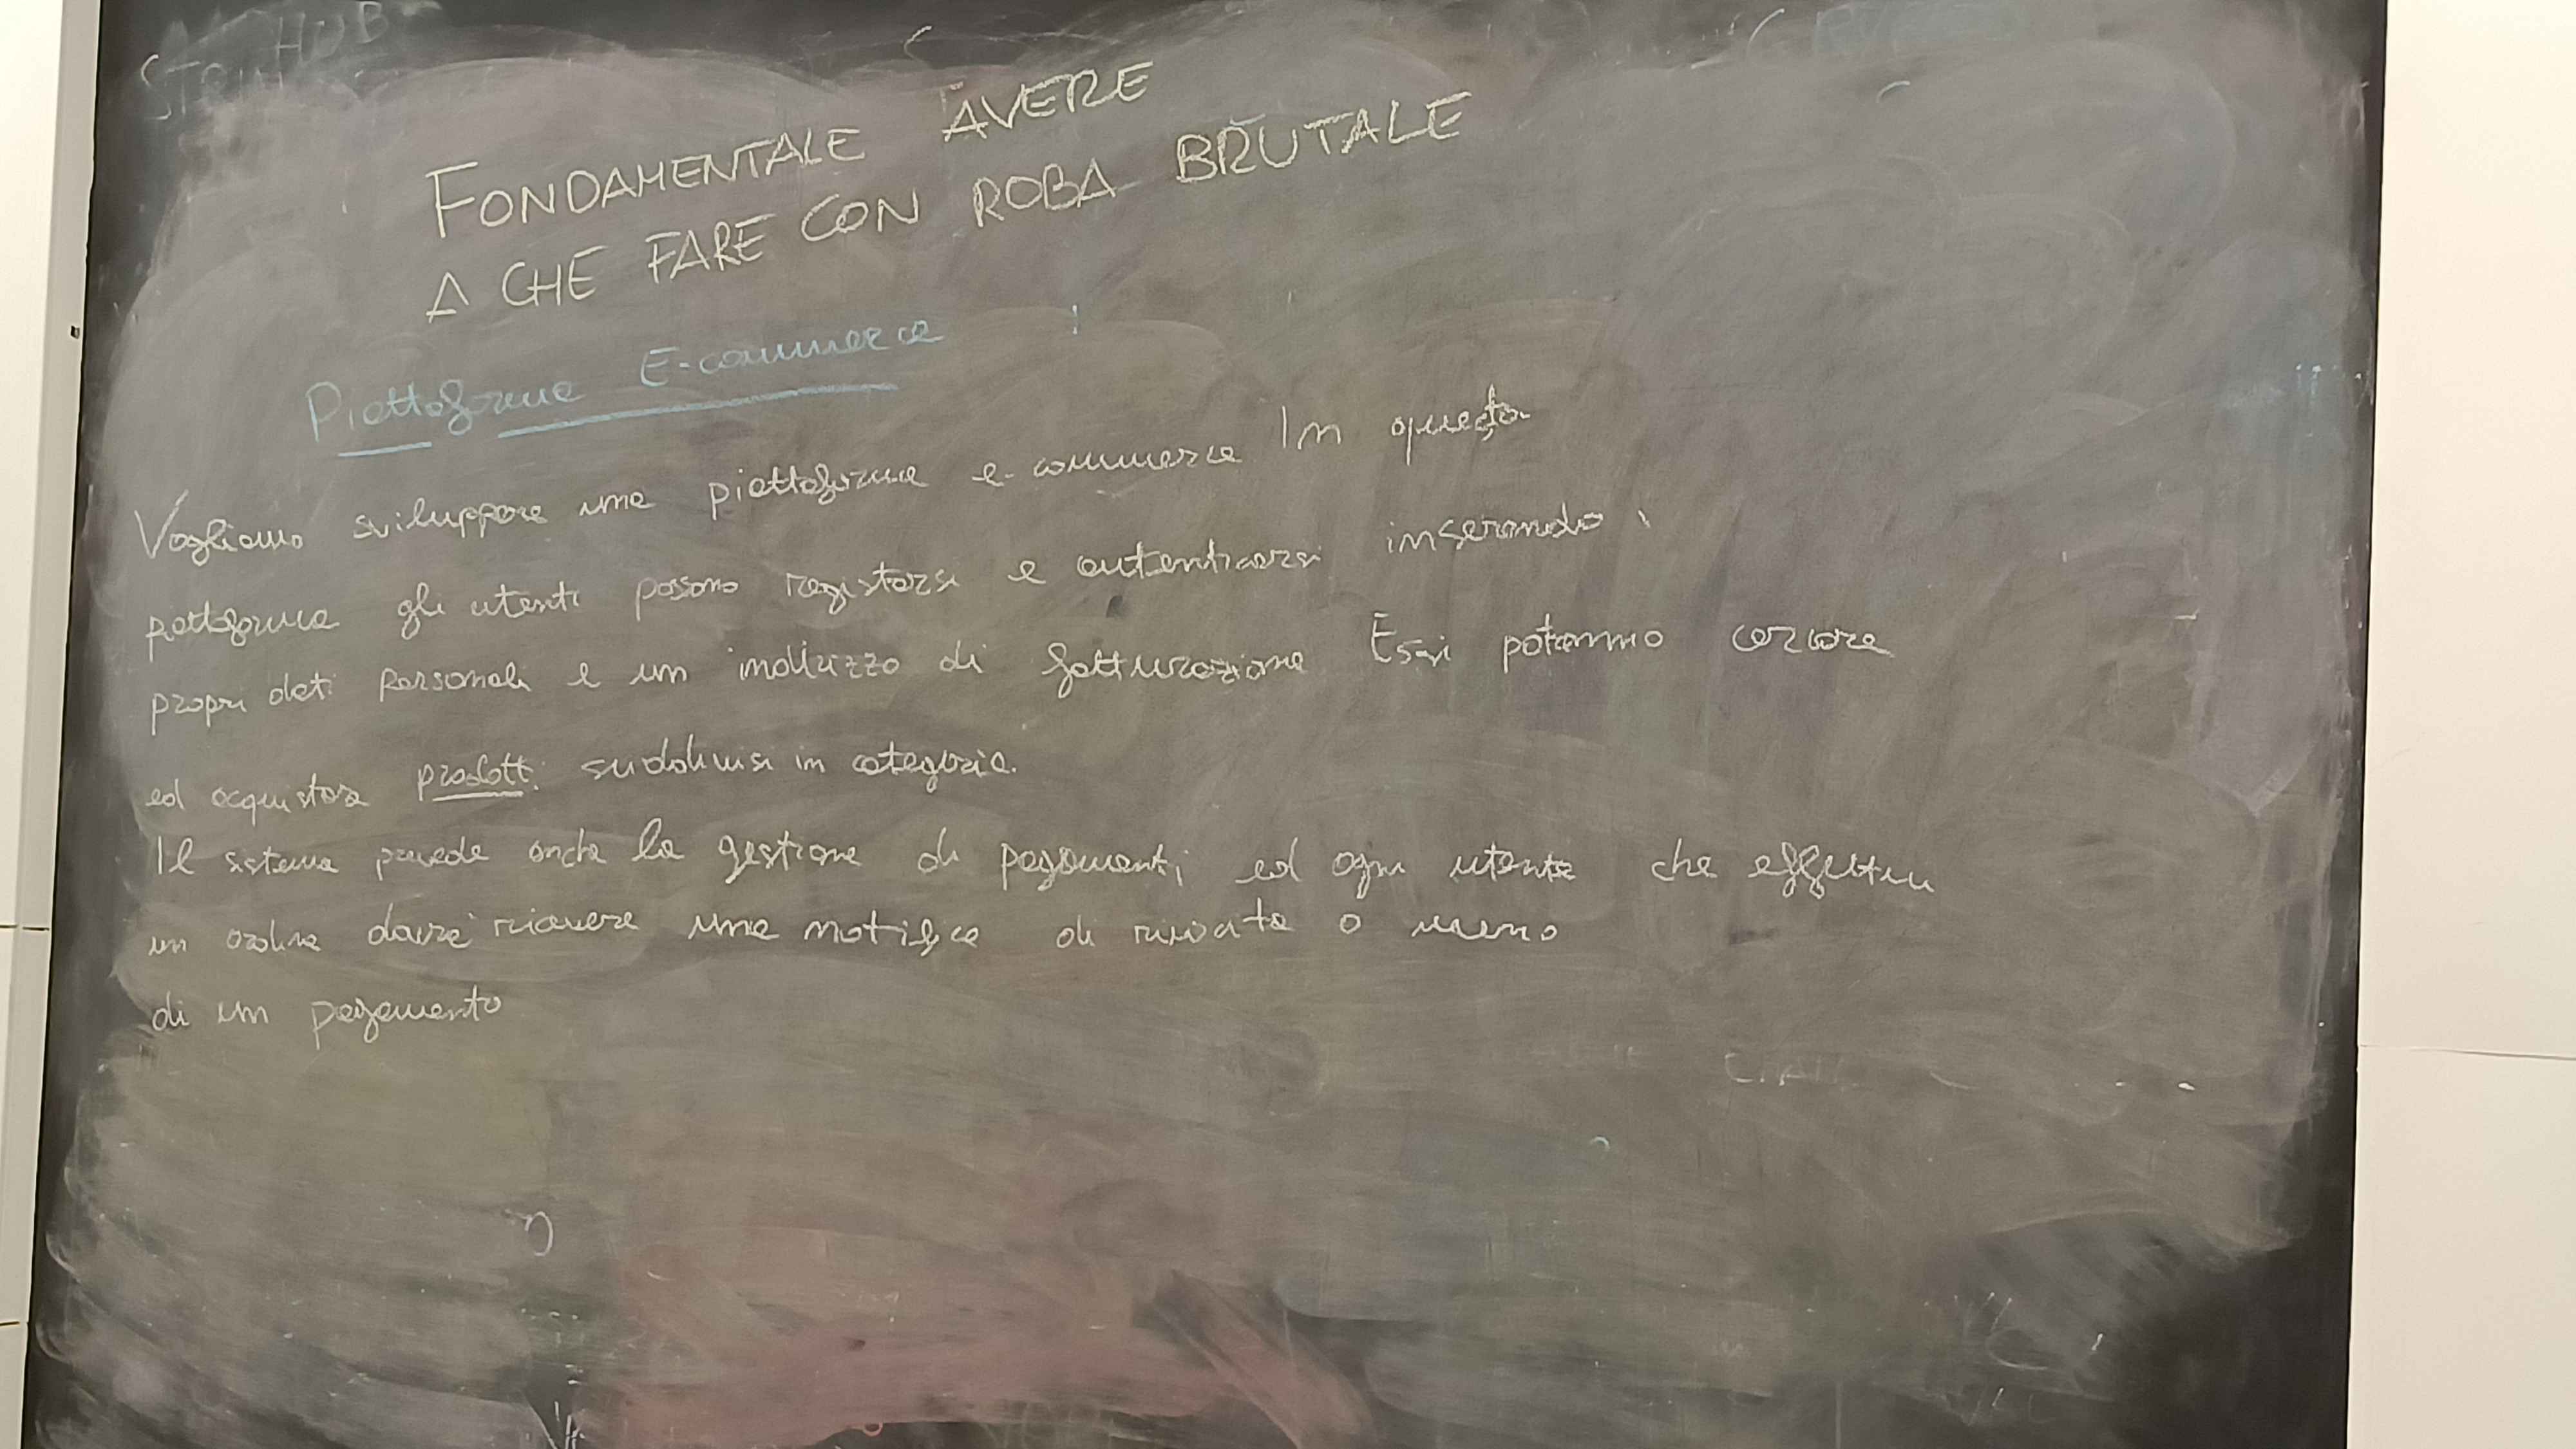 HUB
FONDAMENTALE AVERE
A CHE FARE CON ROBA BRUTALE
Piattaforma E-commerce
Vogliamo sviluppare una piattaforma e-commerce In questa
piattaforma gli utenti possono registrarsi e autenticarsi inserendo i
propri dati personali e un indirizzo di fatturazione Essi potranno cercare
ed acquistare prodotti suddivisi in categorie.
Il sistema prevede anche la gestione di pagamenti ed ogni utente che effettua
un ordine dovrà ricevere una notifica di riuscita o meno
di un pagamento